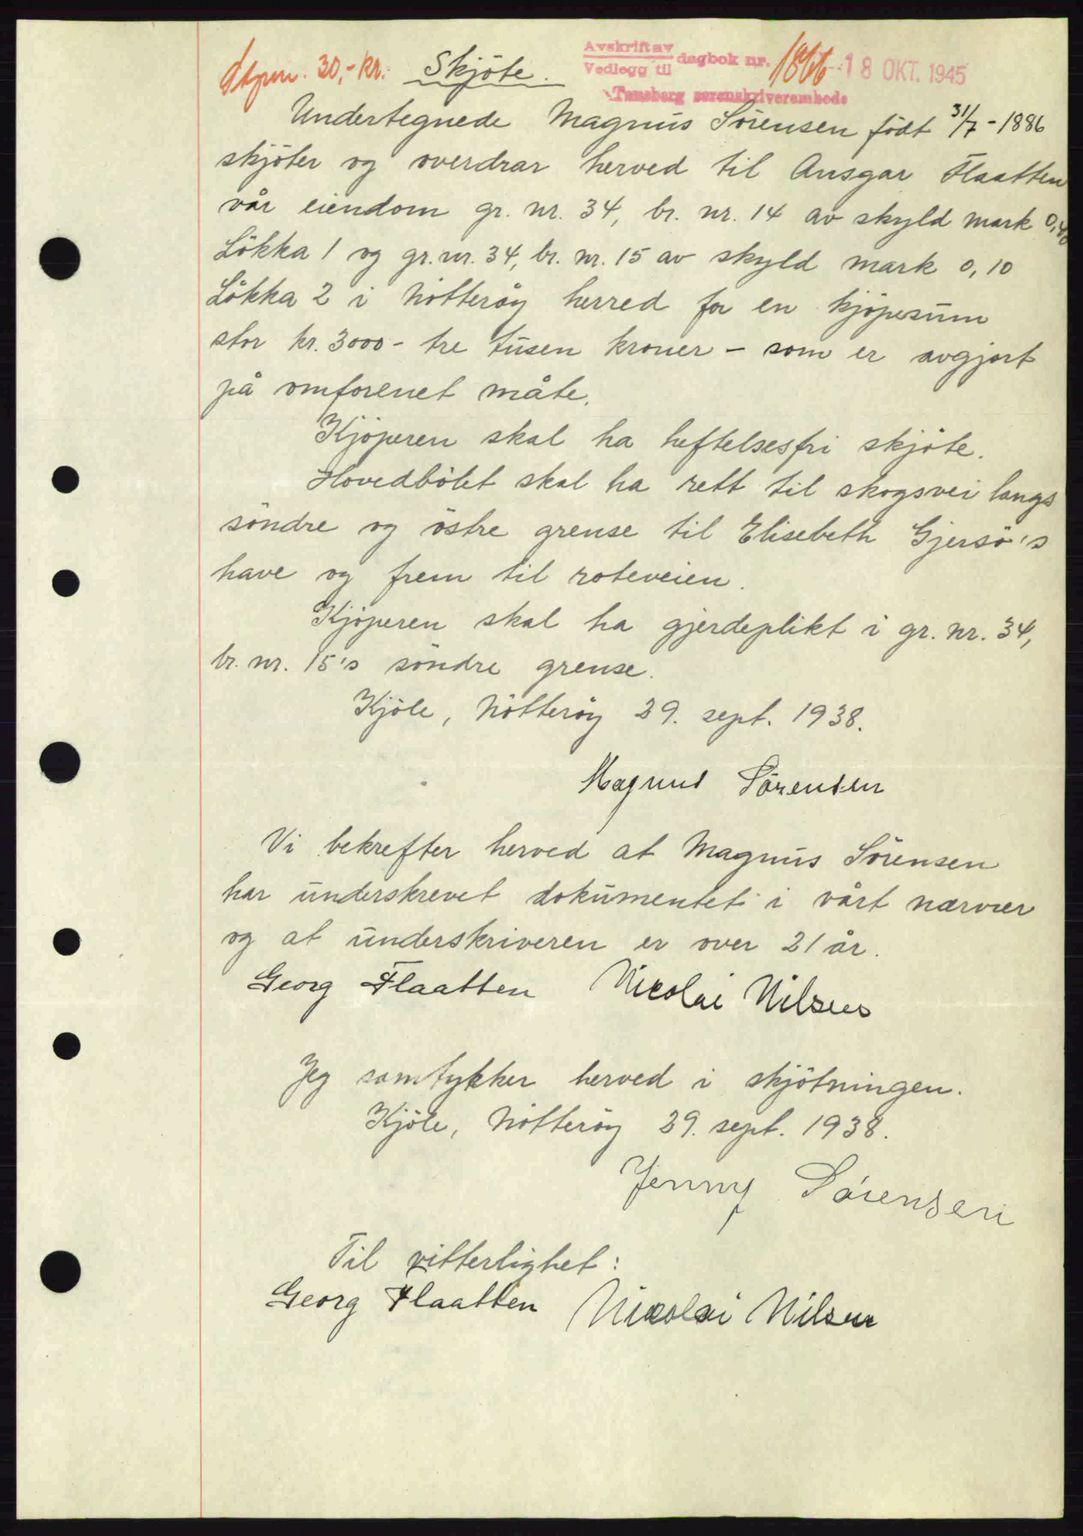 Stpm. 30,- kr. Skjöte.
Avskrift av
Vedlegg til dagbok nr. 1866 - 18 OKT. 1945
Tønsberg sorenskriverembede
Undertegnede Magnus Sörensen födt 31/7 - 1886
skjöter og overdrar herved til Ansgar Flaatten
vår eiendom gr. nr. 34, br. nr. 14 av skyld mark
Lökka 1 og gr. nr. 34, br. nr. 15 av skyld mark 0,10
Lökka 2 i Nötteröy herred for en kjöpesum
stor kr. 3000 - tre tusen kroner - som er avgjort
på omforenet måte.
Kjöperen skal ha heftelsesfri skjöte.
Hovedbölet skal ha rett til skogsvei langs
söndre og östre grense til Elisebeth Gjersö's
have og frem til roteveien.
Kjöperen skal ha gjerdeplikt i gr. nr. 34,
br. nr. 15's söndre grense.
Kjöle, Nötteröy 29. sept. 1938.
Magnus Sörensen
Vi bekrefter herved at Magnus Sörensen
har underskrevet dokumentet i vårt nærvær
og at underskriveren er over 21 år.
Georg Flaatten Nicolai Nilsen
Jeg samtykker herved i skjötningen.
Kjöle, Nötteröy 29. sept. 1938.
Jenny Sörensen
Til vitterlighet:
Georg Flaatten Nicolai Nilsen